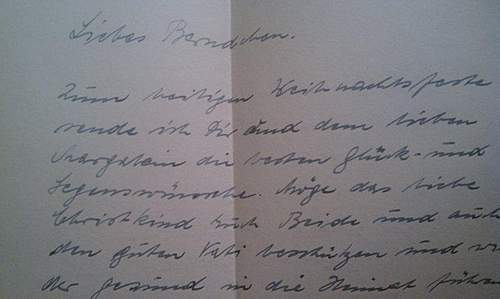 Liebes Berndchen.
Zum heiligen Weihnachtsfeste
sende ich Dir und dem lieben
die besten Glück- und
Segenswünsche. Möge das liebe
Christkind Euch Beide und auch
den guten Vati beschützen und
der gesund in die Heimat